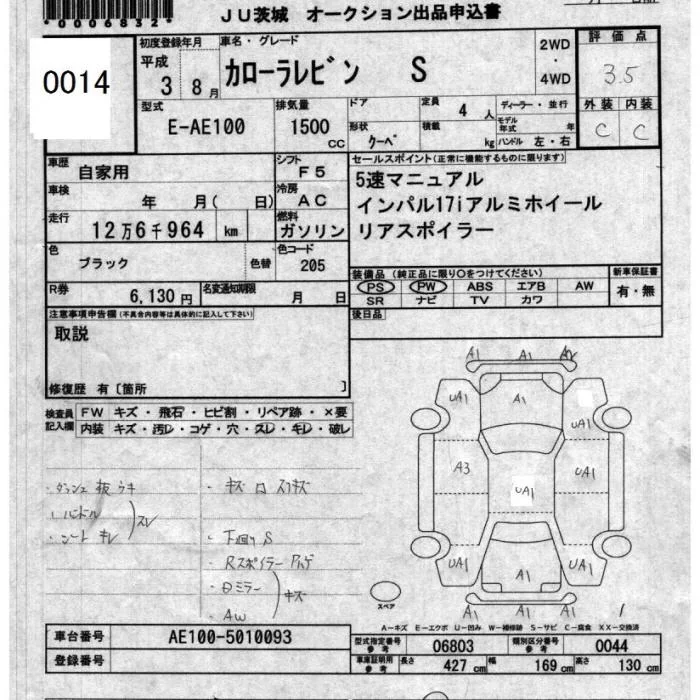 *0006832*
JU茨城 オークション出品申込書
0014
初度登録年月
平成 3 8月
車名・グレード
カローラレビン S
2WD
・
4WD
評価点
3.5
外装 内装
C C
型式
E-AE100
排気量
1500 cc
ドア
定員 4 人
形状 クーペ
積載 kg
ディーラー・並行
モデル年式 年
ハンドル 左・右
車歴 自家用
シフト F5
車検 年 月( 日)
冷房 AC
走行 12万6千964 km
燃料 ガソリン
色 ブラック 色替
色コード 205
R券 6,130円
名変通知期限 月 日
セールスポイント(正常に機能するものに限ります)
5速マニュアル
インパル17iアルミホイール
リアスポイラー
装備品(純正品に限り○をつけてください)
PS PW ABS エアB AW
SR ナビ TV カワ
新車保証書
有・無
後日品
注意事項申告欄(不具合内容等は具体的に記入して下さい)
取説
修復歴 有〔箇所 〕
検査員記入欄
FW キズ・飛石・ヒビ割・リペア跡・×要
内装 キズ・汚レ・コゲ・穴・スレ・キレ・破レ
・ダッシュ板ウキ
・ハンドル スレ
・シート キレ
・キズ ロ スリキズ
・下廻りS
・Rスポイラー
・ミラー キズ
・AW
A1 A1
UA1 A1 UA1
A3 UA1 UA1
UA1 A1 UA1
A1 A1 A1
スペア
A−キズ E−エクボ U−凹み W−補修跡 S−サビ C−腐食 XX−交換済
車台番号 AE100-5010093
登録番号
型式指定番号参考 06803
類別区分番号参考 0044
車庫証明用参考 長さ 427cm 幅 169cm 高さ 130cm